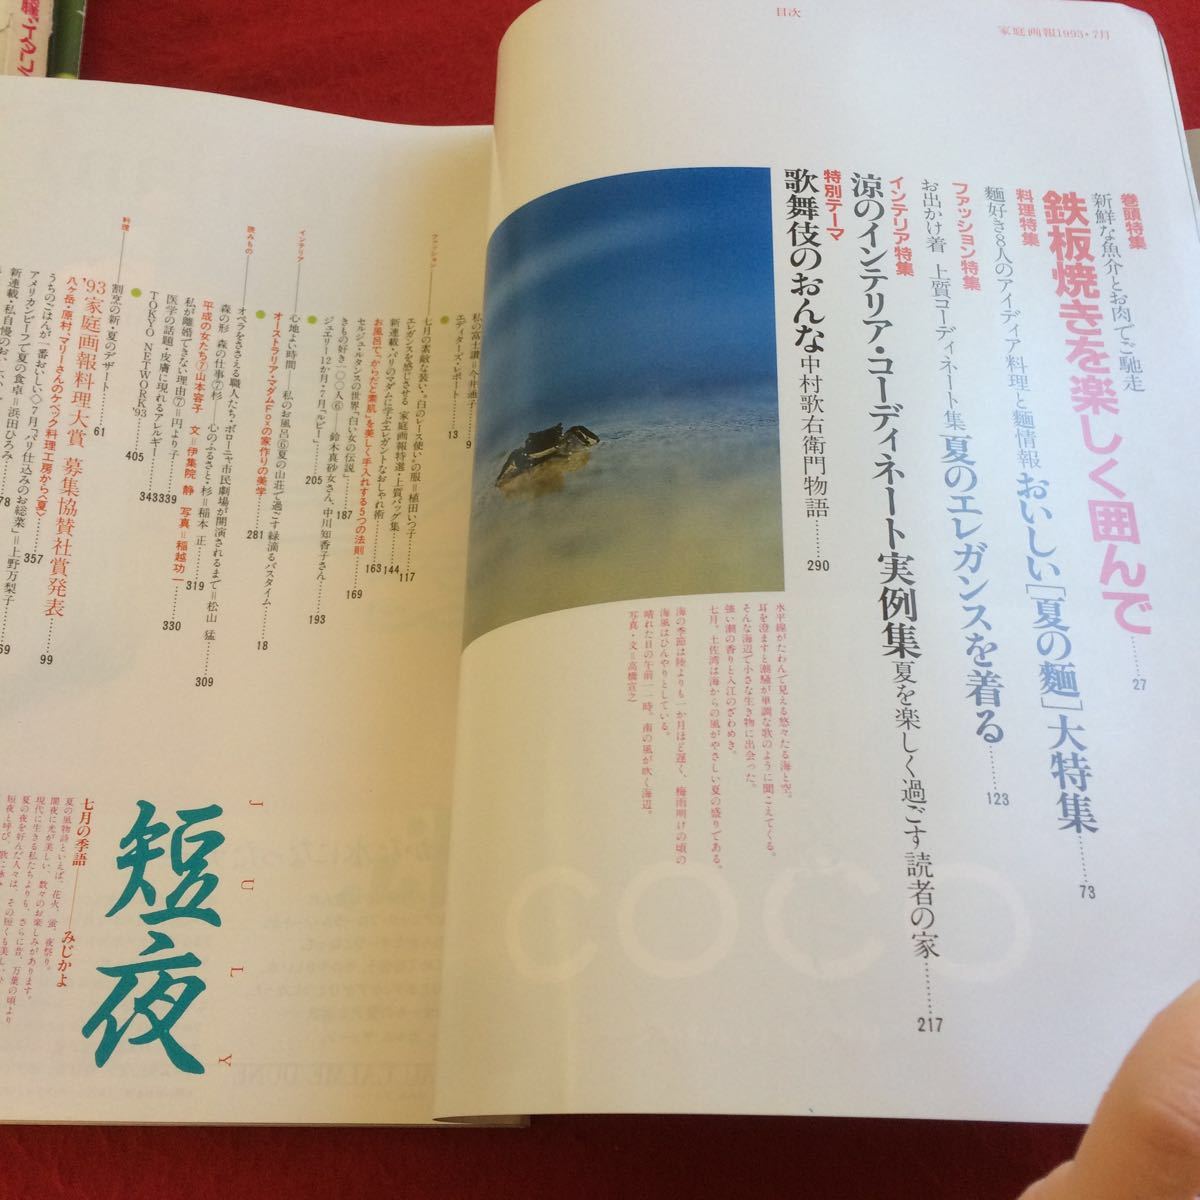 目次
家庭画報1993・7月
巻頭特集
新鮮な魚介とお肉でご馳走
鉄板焼きを楽しく囲んで……27
料理特集
麺好き8人のアイディア料理と麺情報 おいしい[夏の麺]大特集……73
ファッション特集
お出かけ着 上質コーディネート集 夏のエレガンスを着る……123
インテリア特集
涼のインテリア・コーディネート実例集 夏を楽しく過ごす 読者の家……217
特別テーマ
歌舞伎のおんな 中村歌右衛門物語……290
水平線がたわんで見える悠々たる海と空。
耳を澄ますと潮騒が単調な歌のように聞こえてくる。
そんな海辺で小さな生き物に出会った。
強い潮の香りと入江のざわめき。
七月。土佐湾は海からの風がやさしい夏の盛りである。
海の季節は陸よりも一か月ほど遅く、梅雨明けの頃の
海風はひんやりとしている。
晴れた日の午前一一時。南の風が吹く海辺。
写真・文=高橋宣之
私の富士讃=今井通子……9
エディターズ・レポート……13
ファッション
七月の素敵な装い。白のレース使いの服=植田いつ子……117
エレガンスを感じさせる 家庭画報特選・上質バッグ集……144
新連載・パリのマダムに学ぶエレガントなおしゃれ術……163
お風呂で、“からだと素肌”を美しく手入れする5つの法則……169
セルジュ・ルタンスの世界「白い女の伝説」……187
きもの好き一〇〇人⑥——鈴木真砂女さん、中川知香子さん……193
ジュエリー12か月・7月「ルビー」……205
インテリア
心地よい時間——私のお風呂⑥夏の山荘で過ごす緑滴るバスタイム……18
オーストラリア・マダムFoxの家作りの美学……281
読みもの
オペラをささえる職人たち・ボローニャ市民劇場が開演されるまで=松山 猛……309
森の形 森の仕事⑦杉——心のふるさと・杉=稲本 正……319
平成の女たち⑦山本容子 文=伊集院 静 写真=稲越功一……330
私が離婚できない理由⑦=円より子……339
医学の話題・皮膚に現れるアレルギー……343
TOKYO NETWORK'93……405
料理
割烹の新・夏のデザート……61
'93家庭画報料理大賞 募集協賛社賞発表……99
八ヶ岳・原村、マリーさんのケベック料理工房から〈夏〉……357
うちのごはんが一番おいしい◇7月「パリ仕込みのお総菜」=上野万梨子
アメリカンビーフで夏の食卓=浜田ひろみ……78
新連載・私自慢のおい
JULY
短夜
七月の季語——みじかよ
夏の風物詩といえば、花火、蛍、夜祭り。
闇夜に光が美しい、数々のお楽しみがあります。
現代に生きる私たちよりも、さらに昔、万葉の頃より
夏の夜を好んだ人々は、その短くも美しい
短夜と呼び、歌に